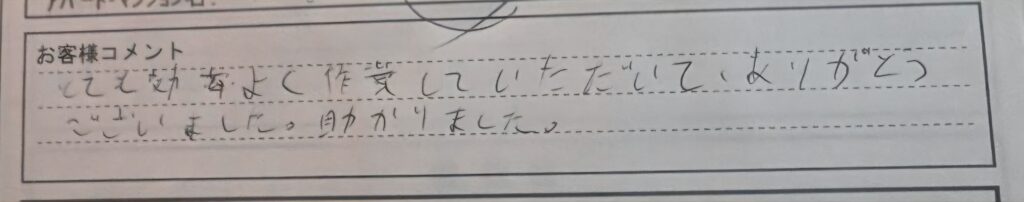 アパート・マンション名:
お客様コメント
とても効率よく作業していただいて、ありがとう
ございました。助かりました。